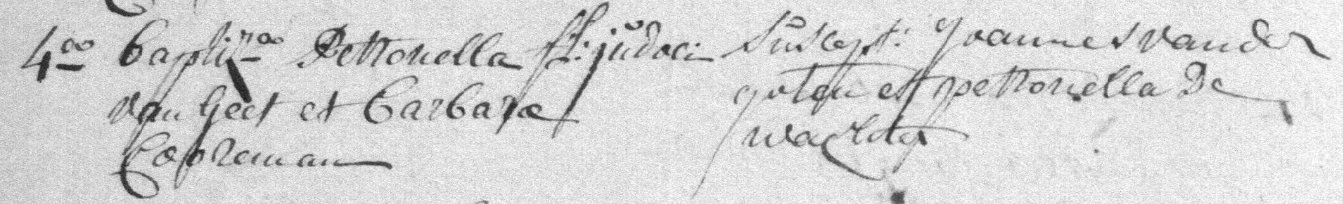 4ao baptizao Petronella f.a judoci
van Geet et Barbara
Cooreman
suscept: Joannes vander
goten et petronella De
wachter